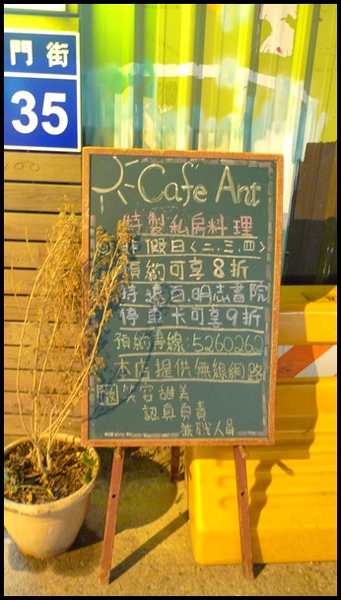 門街
35
Cafe Art
特製私房料理
非假日(二.三.四)
預約可享8折
持遠百.明志書院
停車卡可享9折
預約專線:5260262
本店提供無線網路
徵 笑容甜美
認真負責
兼職人員